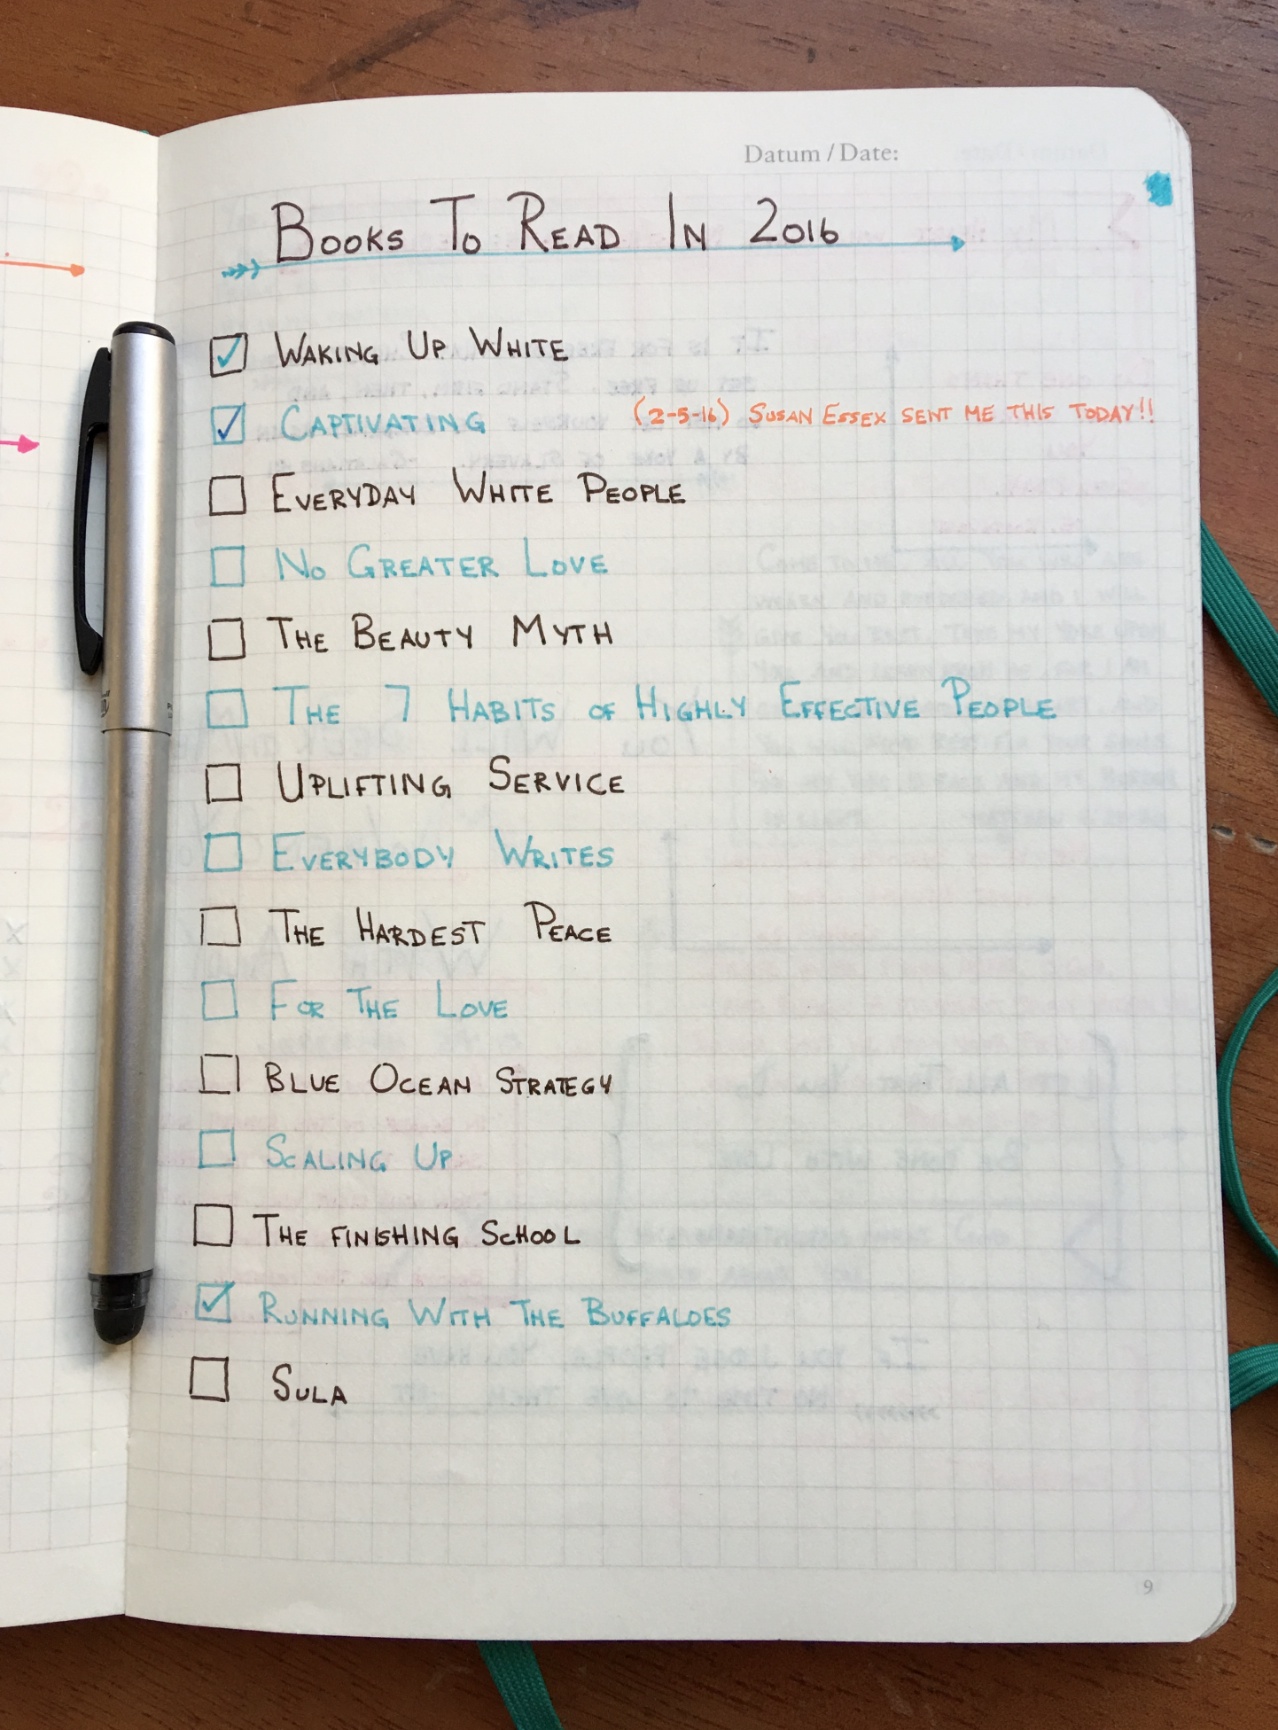 Datum / Date:
BOOKS TO READ IN 2016
WAKING UP WHITE
CAPTIVATING (2-5-16) SUSAN ESSEX SENT ME THIS TODAY!!
EVERYDAY WHITE PEOPLE
NO GREATER LOVE
THE BEAUTY MYTH
THE 7 HABITS OF HIGHLY EFFECTIVE PEOPLE
UPLIFTING SERVICE
EVERYBODY WRITES
THE HARDEST PEACE
FOR THE LOVE
BLUE OCEAN STRATEGY
SCALING UP
THE FINISHING SCHOOL
RUNNING WITH THE BUFFALOES
SULA
9